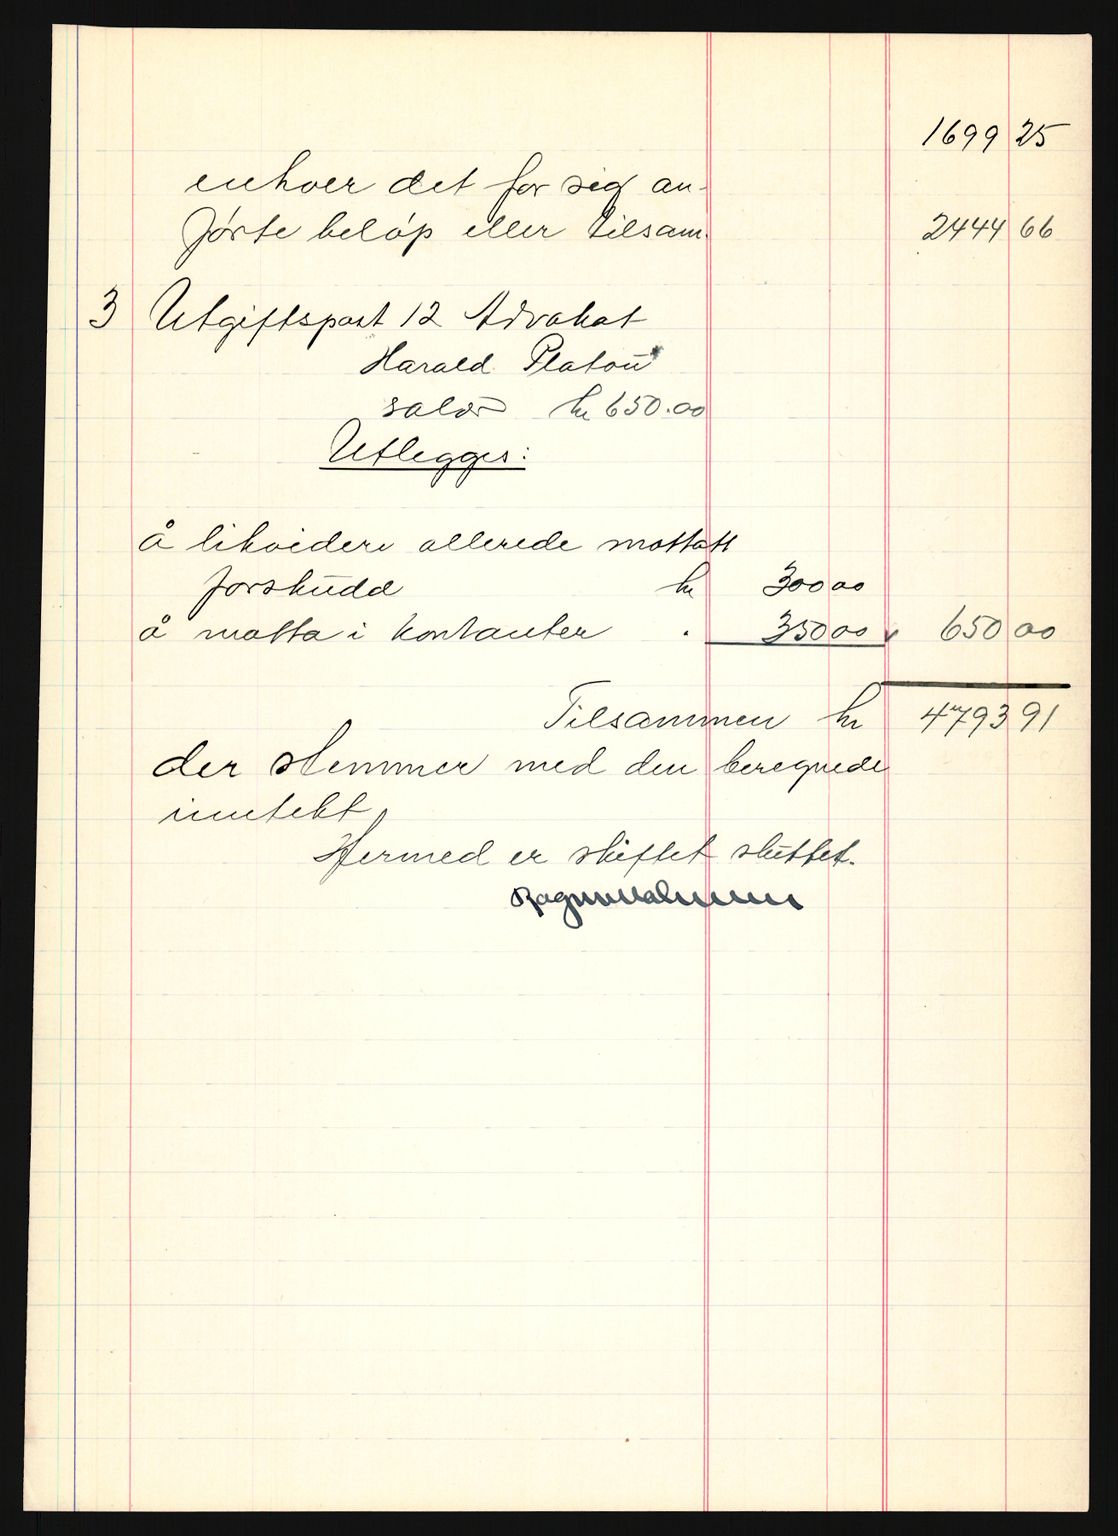 1699 25
enhver det for sig an-
førte beløp eller tilsam. 2444 66
3 Utgiftspost 12 Advokat
Harald Platou
salær kr 650.00
Utlegges:
å likvidere allerede mottatt
forskudd kr 300 00
å motta i kontanter . 350 00 650 00
Tilsammen kr 4793 91
der stemmer med den beregnede
inntekt
Hermed er skiftet sluttet.